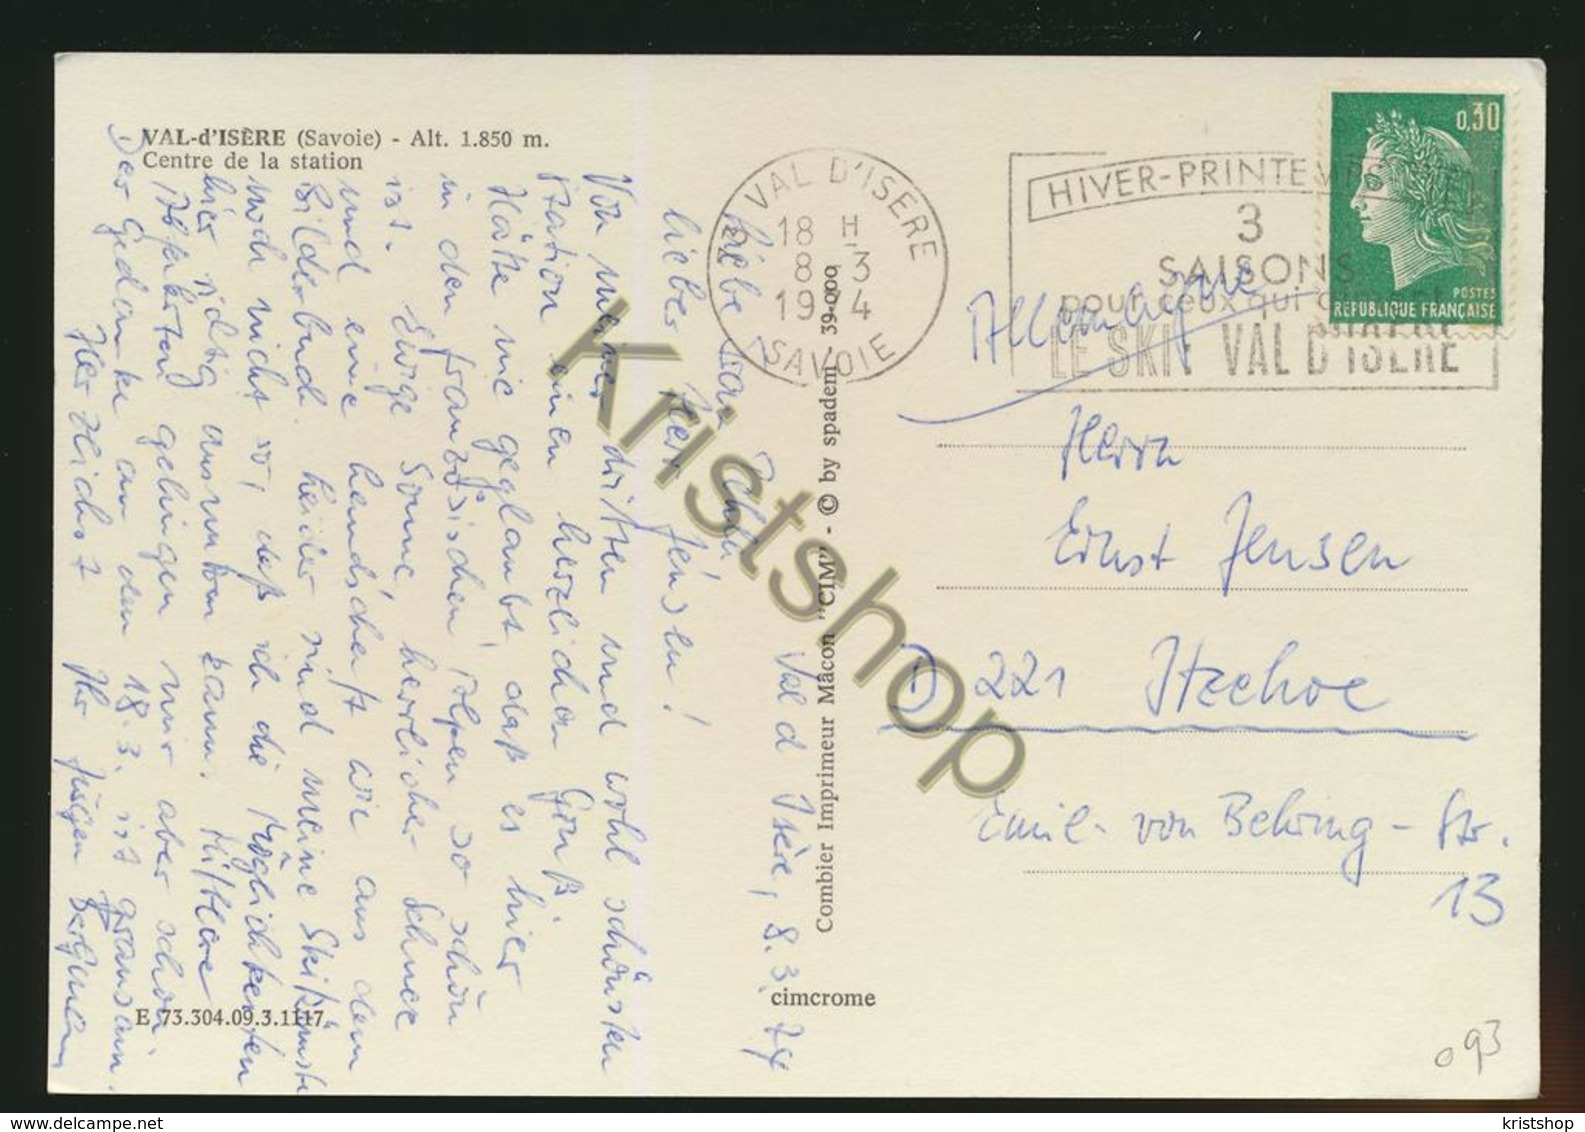 VAL-d'ISÈRE (Savoie) - Alt. 1.850 m.
Centre de la station
Val d'Isère, 8.3.74
Liebe Frau
lieber Herr Jensen!
Von meiner dritten und wohl schönsten
Station einen herzlichen Gruß.
Hätte nie geglaubt, daß es hier
in den französischen Alpen so schön
ist. Ewige Sonne, herrlicher Schnee
und eine Landschaft wie aus dem
Bilderbuch. Leider sind meine Skikünste
noch nicht so, daß ich die Möglichkeiten
hier richtig ausnutzen kann. Mittlere
Abfahrten gelingen mir aber schon.
Der Gedanke an den 18.3. ist grausam.
Herzlichst Ihr Jürgen Bergmann
E 73.304.09.3.1117
Combier Imprimeur Mâcon "CIM" - © by spadem - 39-000
cimcrome
VAL D'ISERE
18 H
8 3
1974
SAVOIE
HIVER-PRINTEMPS-ETE
3
SAISONS
pour ceux qui
LE SKI: VAL D'ISERE
0,30
POSTES
REPUBLIQUE FRANÇAISE
Allemagne
Herrn
Ernst Jensen
D 221 Itzehoe
Emil-von Behring-Str.
13
093
Kristshop
kristshop